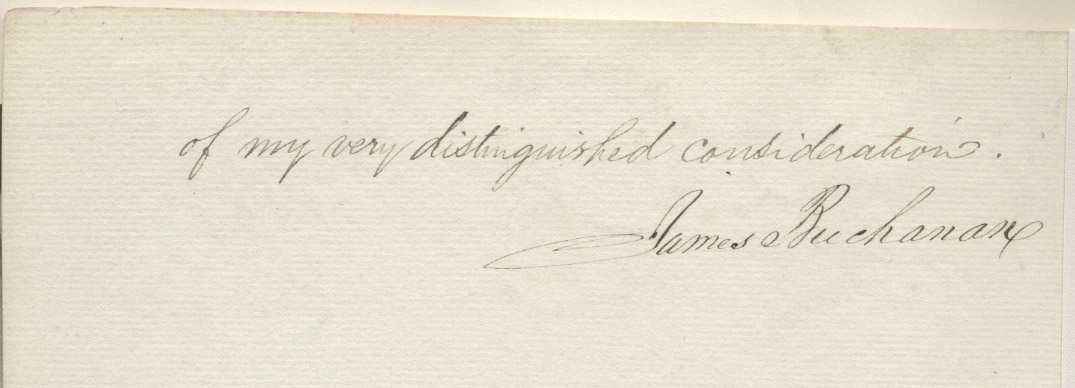 of my very distinguished consideration.
James Buchanan